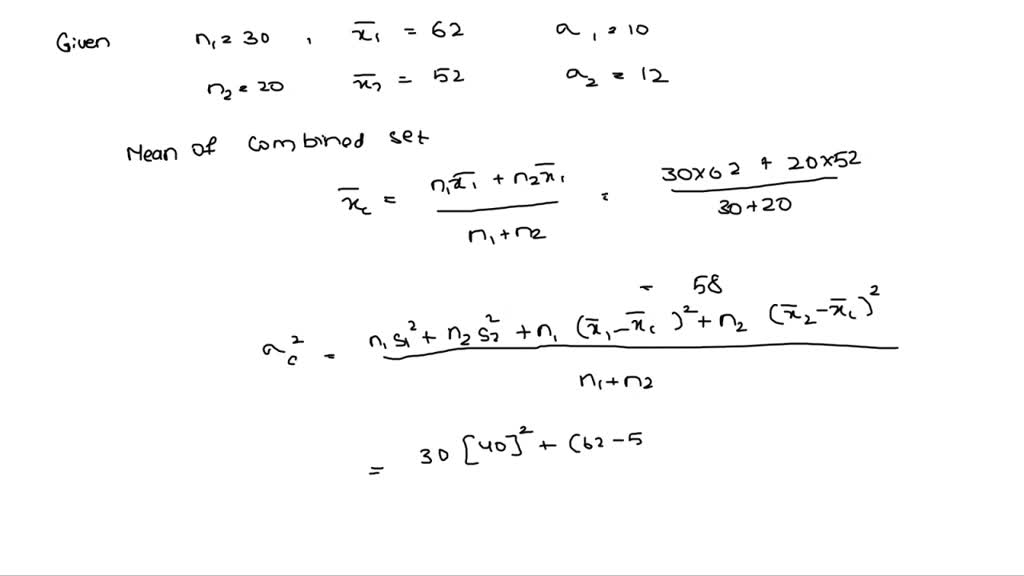 Given n₁ = 30 , x̄₁ = 62 a₁ = 10
n₂ = 20 x̄₂ = 52 a₂ = 12
Mean of combined set
x̄c = (n₁x̄₁ + n₂x̄₁) / (n₁+n₂) = (30×62 + 20×52) / (30+20)
= 58
ac² = (n₁s₁² + n₂s₂² + n₁ (x̄₁-x̄c)² + n₂ (x̄₂-x̄c)²) / (n₁+n₂)
= 30 [40]² + (62-5